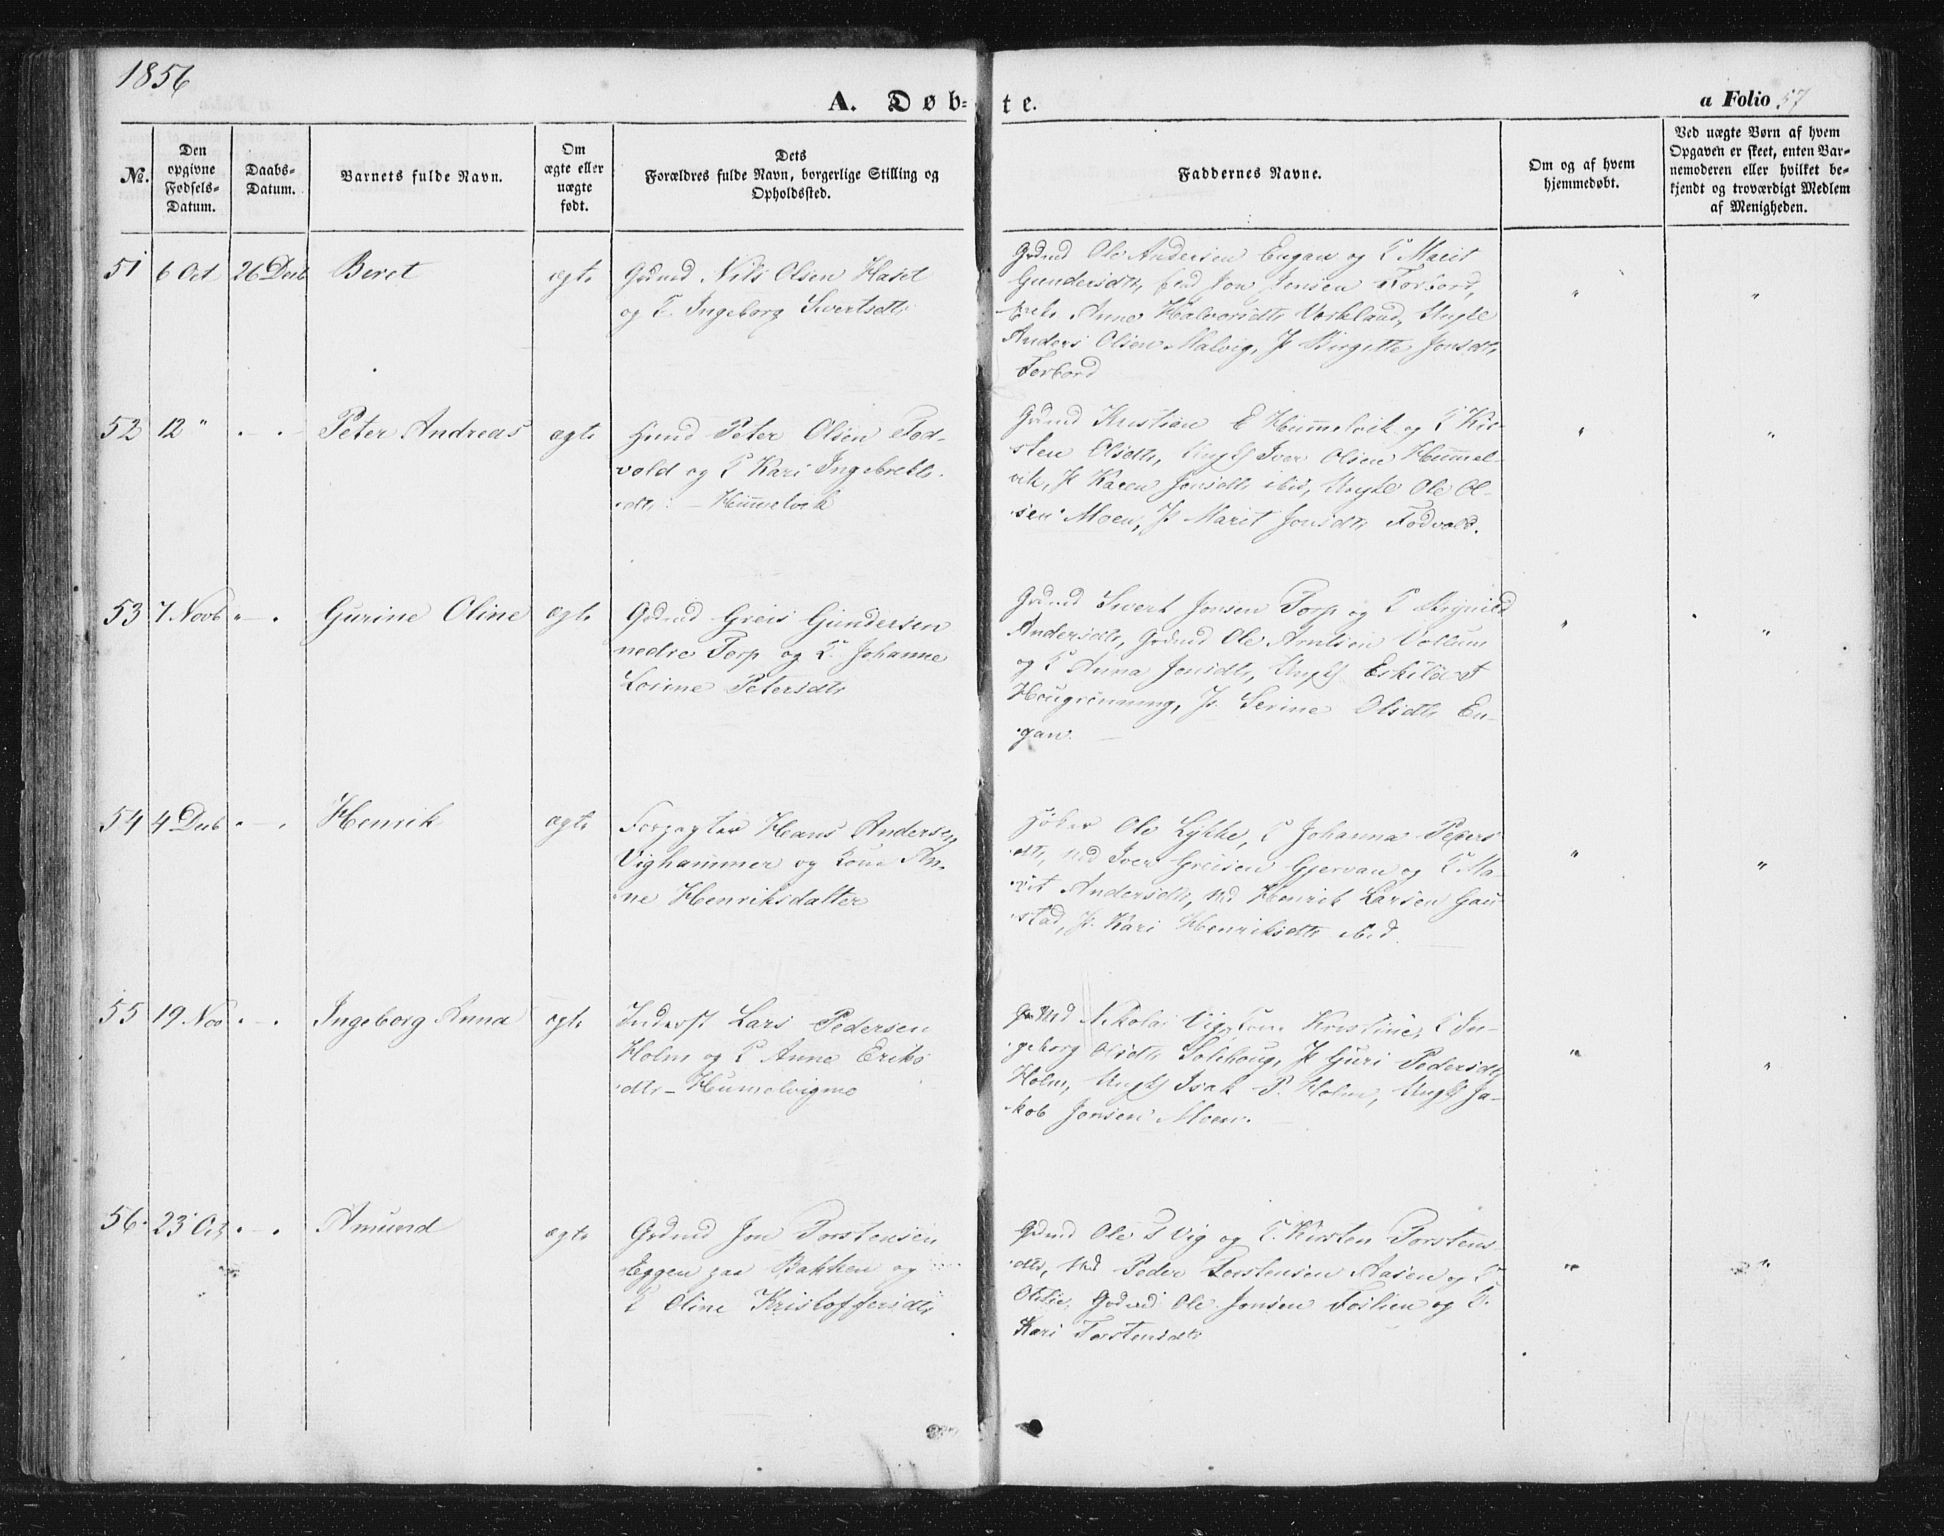 1856
A. Døb-
te.
a Folio 57
No.
Den
opgivne
Fødsels-
Datum.
Daabs-
Datum.
Barnets fulde Navn.
Om
ægte eller
uægte
født.
Dets
Forældres fulde Navn, borgerlige Stilling og
Opholdssted.
Faddernes Navne.
Om og af hvem
hjemmedøbt.
Ved uægte Børn af hvem
Opgaven er skeet, enten Bar-
nemoderen eller hvilket be-
kjendt og troværdigt Medlem
af Menigheden.
51 6 Oct 26 Decb Beret ægte
Grdmd Nils Olsen Hasel
og K. Ingeborg Sivertsdtr
Grdmd Ole Andersen Engan og K Marit
Gundersdtr, Jon Jensen Forbord,
Anne Halvorsdtr Værkland, Ungkl
Anders Olsen Malvig, P Birgitte Jonsdtr
Forbord
" "
52 12 " " " Peter Andreas ægte
Husmd Peter Olsen Fod-
vold og K Kari Ingebrekts-
dtr - Himmelvik
Grdmd Kristian E Hummelvik og K Kir-
sten Olsdtr, Ungk Iver Olsen Hummel-
vik, P Karen Jonsdtr ibid, Ungkl Ole Ol-
sen Moen, P Marit Jonsdtr Fodvold.
" "
53 7 Novb " " Gurine Oline ægte
Grdmd Greis Gundersen
nedre Torp og K. Johanne
Losine Petersdtr
Grdmd Sivert Jonsen Torp og K
Andersdtr, Grdmd Ole Arntsen Vollum
og K Anna Jonsdtr, Ungk Eskild
P. Serine Olsdtr En-
gan. -
" "
54 4 Decb " " Henrik ægte
Forpagter Hans Andersen
Vighammer og Kone An-
ne Henriksdatter
Høker Ole Lykke, K Johanna Peters
dtr, Md Iver Greisen Gjervan og K Ma-
rit Andersdtr, Md Henrik Larsen Gau
stad, P. Kari Henriksdtr ibid.
" "
55 19 Nov " " Ingeborg Anna ægte
Inderst Lars Pedersen
Holm og K Anne Eriks
dtr - Humelvigmo
Md Nikolai Vig, Kone Kristine, K In-
geborg Olsdtr Solehoug, P Guri Pedersdtr
Holm, Ungk Isak P. Holm, Ungk Ja-
kob Jonsen Moen.
" "
56. 23 Oct " " Amund ægte
Grdmd Jon Torstensen
Eggen paa Bakken og
K Oline Kristoffersdtr
Grdmd Ole Vig og K. Kirsten Torstens-
dtr, Md Peder Torstensen Aasen og K
Grdmd Ole Jonsen Foslien og K.
Kari Torstensdtr
" "